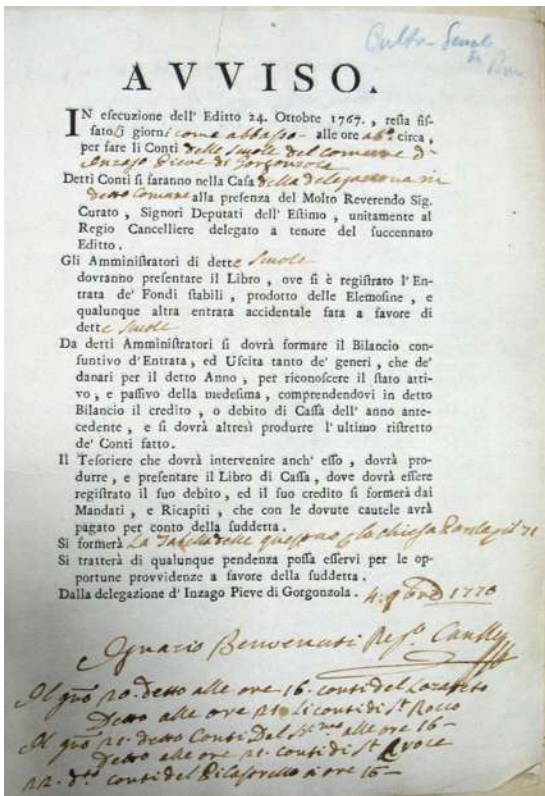 Culto - Scuole
AVVISO.
IN eſecuzione dell' Editto 24. Ottobre 1767., reſta fiſ-
ſato li giorni come abbaſso - alle ore ab.o circa,
per fare li Conti delle ſcuole del comune d'
Inzago Pieve di Gorgonzola
Detti Conti ſi faranno nella Caſa della delegazione in
detto Comune alla preſenza del Molto Reverendo Sig.
Curato, Signori Deputati dell' Eſtimo, unitamente al
Regio Cancelliere delegato a tenore del ſuccennato
Editto.
Gli Amminiſtratori di dette ſcuole
dovranno preſentare il Libro, ove ſi è regiſtrato l' En-
trata de' Fondi ſtabili, prodotto delle Elemoſine, e
qualunque altra entrata accidentale fata a favore di
dette ſcuole
Da detti Amminiſtratori ſi dovrà formare il Bilancio con-
ſuntivo d'Entrata, ed Uſcita tanto de' generi, che de'
danari per il detto Anno, per riconoſcere il ſtato atti-
vo, e paſſivo della medeſima, comprendendovi in detto
Bilancio il credito, o debito di Caſſa dell' anno ante-
cedente, e ſi dovrà altresì produrre l' ultimo riſtretto
de' Conti fatto.
Il Teſoriere che dovrà intervenire anch' eſſo, dovrà pro-
durre, e preſentare il Libro di Caſſa, dove dovrà eſſere
regiſtrato il ſuo debito, ed il ſuo credito ſi formerà dai
Mandati, e Ricapiti, che con le dovute cautele avrà
pagato per conto della ſuddetta.
Si formerà La Tabella delle queſtue la chieſa 71
Si tratterà di qualunque pendenza poſſa eſſervi per le op-
portune provvidenze a favore della ſuddetta.
Dalla delegazione d' Inzago Pieve di Gorgonzola. 4. 9bre 1770
Ignazio Benvenuti Reg.o Canll.e
Il gno 20. detto alle ore 16. conti del Lazareto
Detto alle ore 21. Li conti di St. Rocco
Il gno 21. detto Conti Del SS.mo alle ore 16 -
Detto alle ore 21. conti di St. Croce
22. do. conti del Pilaſtrello a ore 16 -